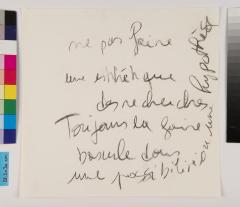 ne pas faire
une esthétique
des recherches
Toujours la faire
bascule dans
une possibilité
ou une hypothèse